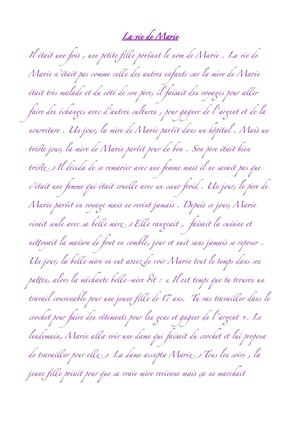 La vie de Marie
Il était une fois , une petite fille portant le nom de Marie . La vie de
Marie n'était pas comme celle des autres enfants car la mère de Marie
était très malade et du côté de son père, il faisait des voyages pour aller
faire des échanges avec d'autres cultures , pour gagner de l'argent et de la
nourriture . Un jour, la mère de Marie partit dans un hôpital . Mais un
triste jour, la mère de Marie partit pour de bon . Son père était bien
triste. Il décida de se remarier avec une femme mais il ne savait pas que
c'était une femme qui était cruelle avec un cœur froid . Un jour, le père de
Marie partit en voyage mais ne revint jamais . Depuis ce jour, Marie
vivait seule avec sa belle mère. Elle rangeait , faisait la cuisine et
nettoyait la maison de font en comble, jour et nuit sans jamais se reposer .
Un jour, la belle mère en eut assez de voir Marie tout le temps dans ses
pattes, alors la méchante belle-mère dit : « Il est temps que tu trouves un
travail convenable pour une jeune fille de 17 ans. Tu vas travailler dans le
crochet pour faire des vêtements pour les gens et gagner de l'argent ». Le
lendemain, Marie alla voir une dame qui faisait du crochet et lui proposa
de travailler pour elle. La dame accepta Marie. Tous les soirs , la
jeune fille priait pour que sa vraie mère revienne mais ça ne marchait